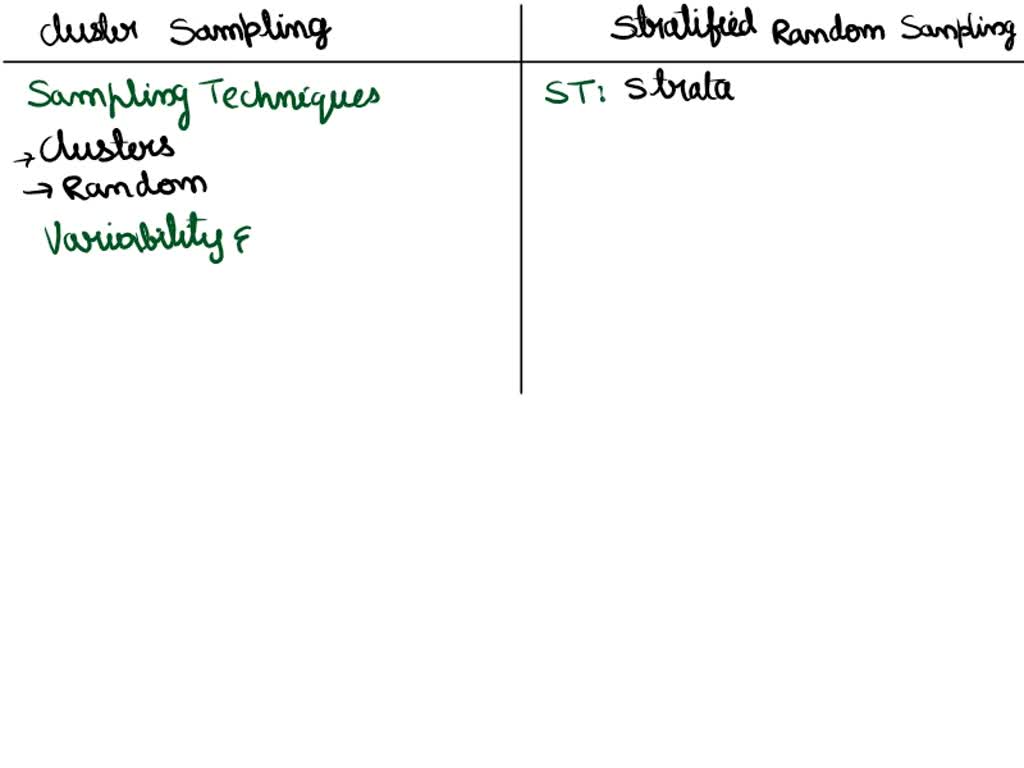 Cluster Sampling
Stratified Random Sampling
Sampling Techniques
→ Clusters
→ Random
Variability &
ST: Strata